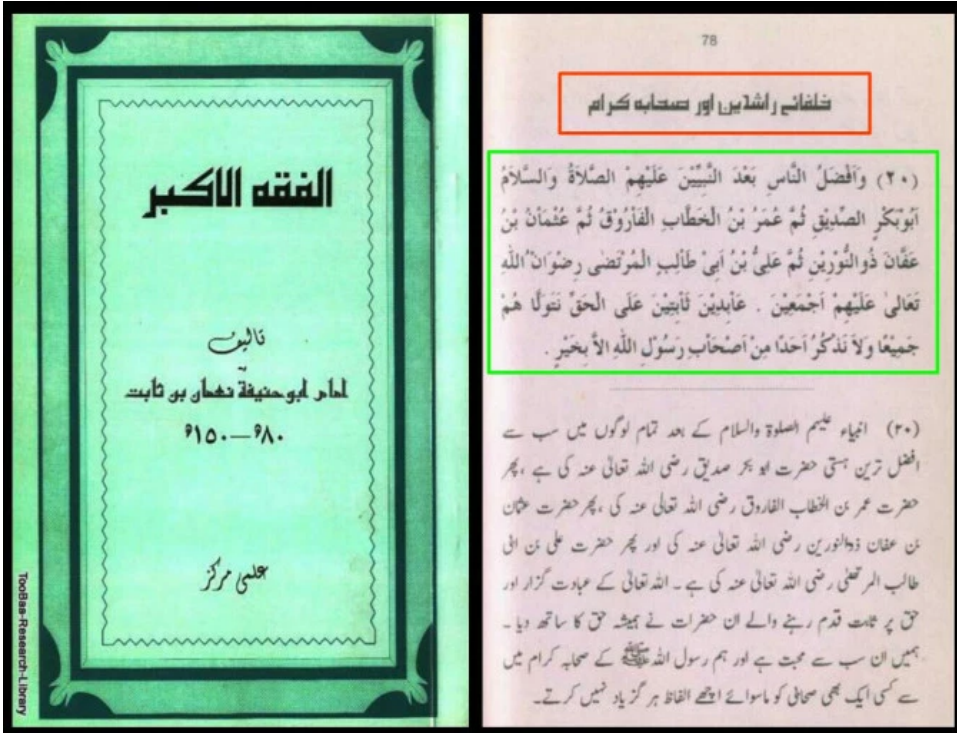 الفقه الاكبر
تالیف
امام ابو حنیفة نعمان بن ثابت
۸۰ھ—۱۵۰ھ
علمی مرکز
TooBaa-Research-Library
78
خلفائے راشدین اور صحابه کرام
(۲۰) وَاَفْضَلُ النَّاسِ بَعْدَ النَّبِيِّيْنَ عَلَيْهِمُ الصَّلَاةُ وَالسَّلَامُ
اَبُوْبَكْرٍ الصِّدِّيْقِ ثُمَّ عُمَرُ بْنُ الْخَطَّابِ الْفَارُوْقُ ثُمَّ عُثْمَانُ بْنُ
عَفَّانَ ذُوالنُّوْرَيْنِ ثُمَّ عَلِيُّ بْنُ اَبِيْ طَالِبِ الْمُرْتَضٰى رِضْوَانُ اللّٰهِ
تَعَالىٰ عَلَيْهِمْ اَجْمَعِيْنَ . عَابِدِيْنَ ثَابِتِيْنَ عَلَى الْحَقِّ نَتَوَلَّا هُمْ
جَمِيْعًا وَلَا نَذْكُرُ اَحَدًا مِنْ اَصْحَابِ رَسُوْلِ اللّٰهِ اِلَّا بِخَيْرٍ .
(۲۰) انبیاء علیہم الصلوۃ والسلام کے بعد تمام لوگوں میں سب سے
افضل ترین ہستی حضرت ابو بکر صدیق رضی اللہ تعالیٰ عنہ کی ہے ، پھر
حضرت عمر بن الخطاب الفاروق رضی اللہ تعالیٰ عنہ کی ، پھر حضرت عثمان
بن عفان ذوالنورین رضی اللہ تعالیٰ عنہ کی اور پھر حضرت علی بن ابی
طالب المرتضی رضی اللہ تعالیٰ عنہ کی ہے ۔ اللہ تعالیٰ کے عبادت گزار اور
حق پر ثابت قدم رہنے والے ان حضرات نے ہمیشہ حق کا ساتھ دیا ۔
ہمیں ان سب سے محبت ہے اور ہم رسول اللہ ﷺ کے صحابہ کرام میں
سے کسی ایک بھی صحابی کو ماسوائے اچھے الفاظ ہر گز یاد نہیں کرتے۔